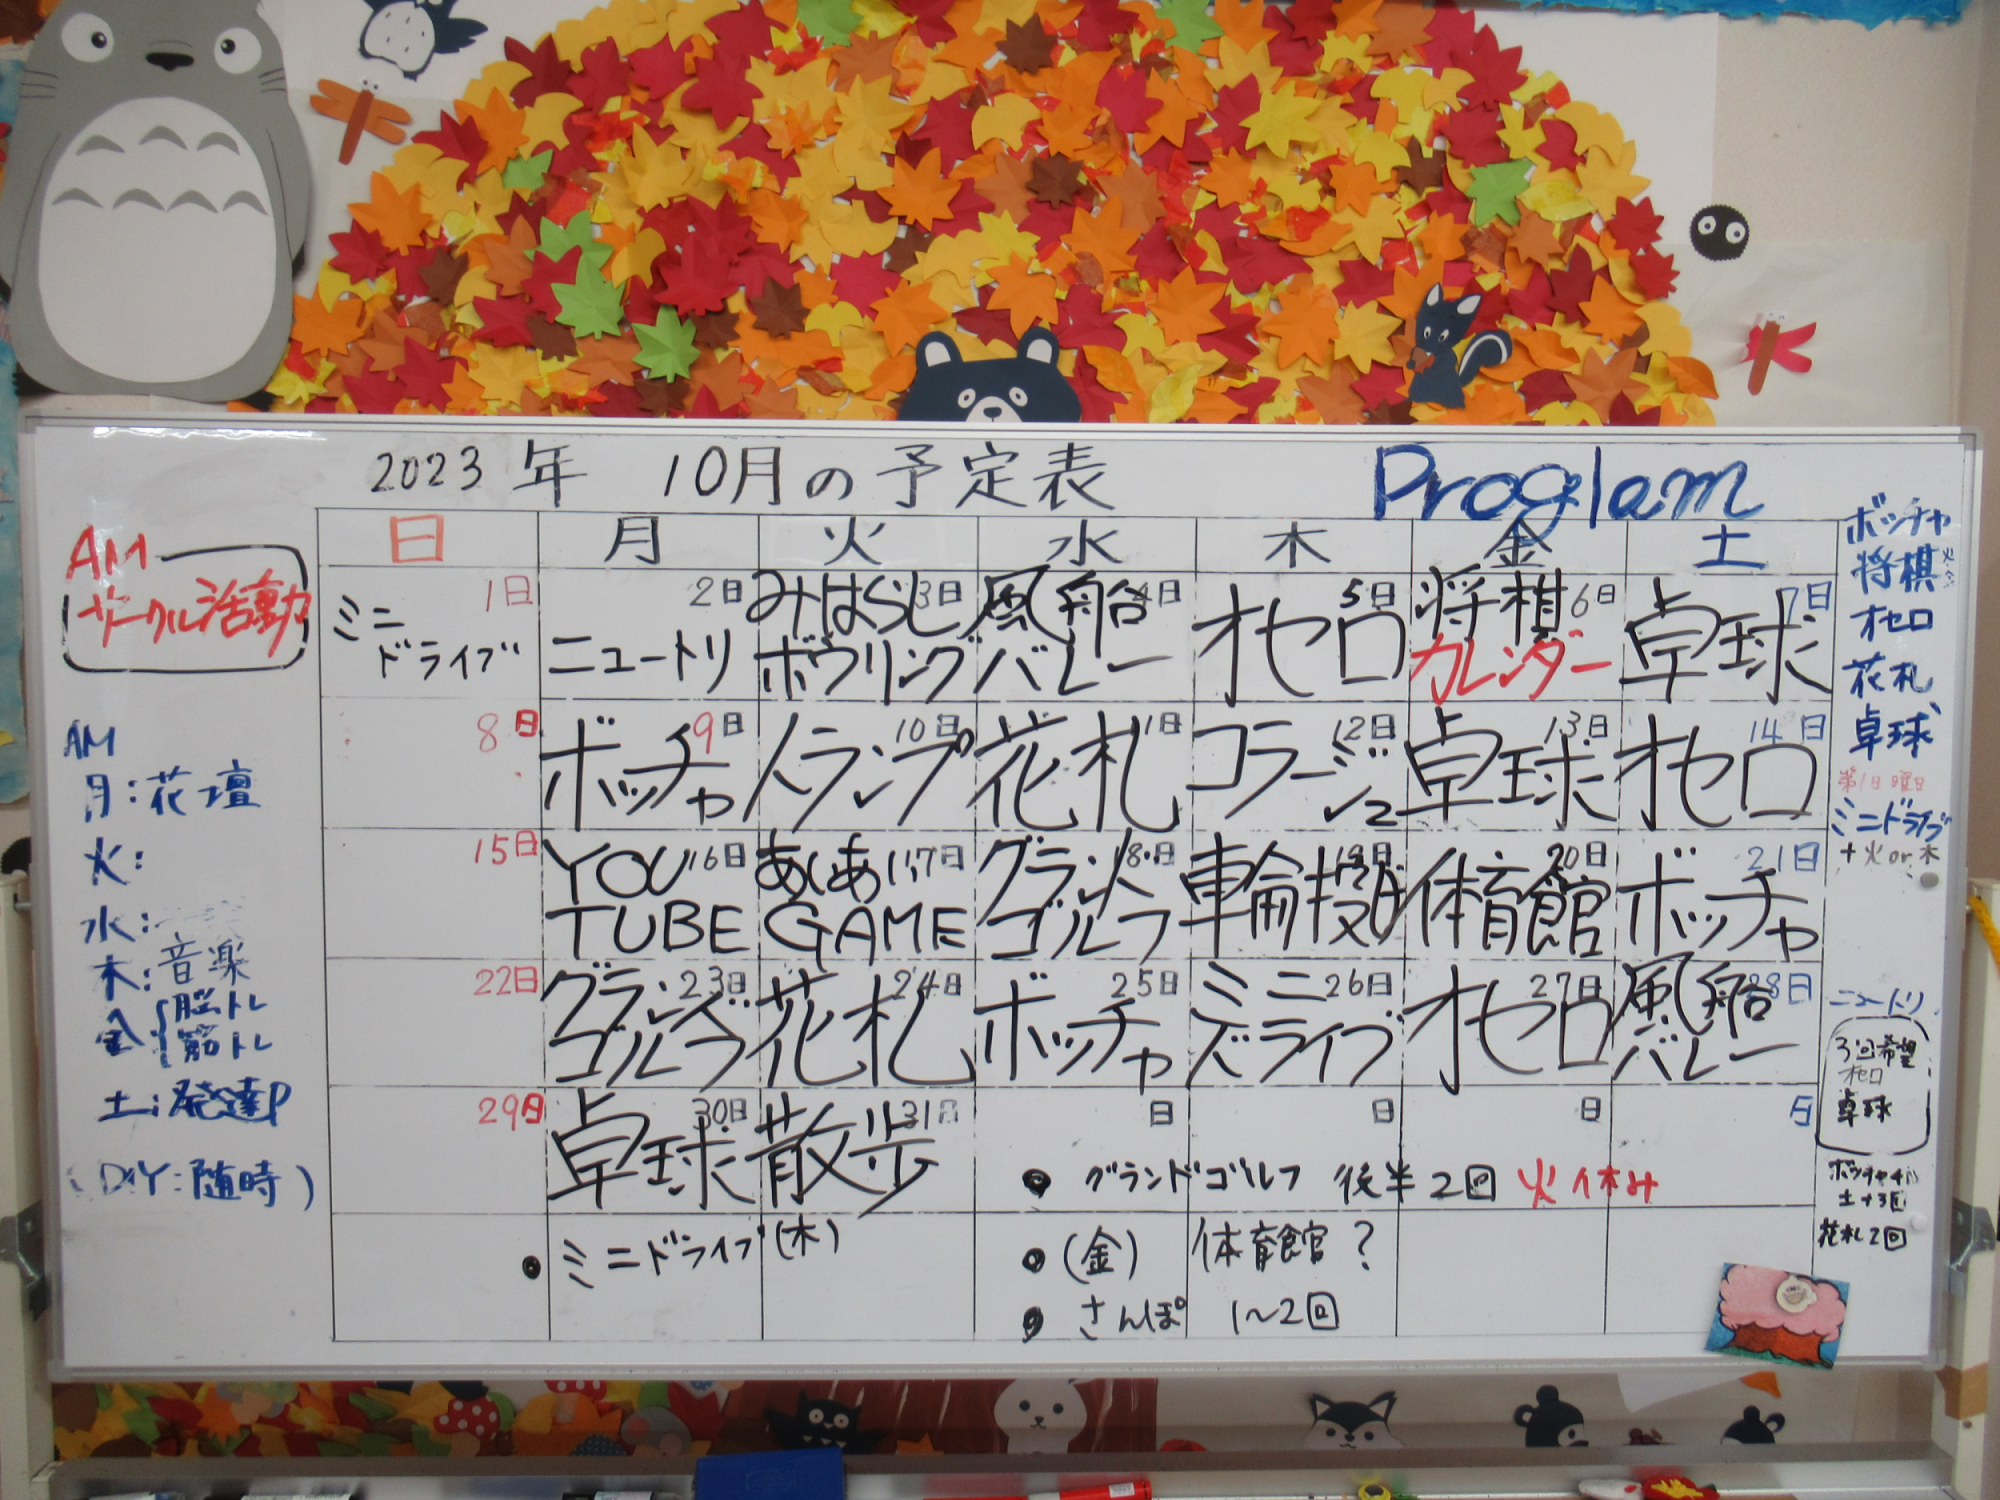 2023年 10月の予定表
Proglam
日 月 火 水 木 金 土
1日 ミニドライブ
2日 ニュートリ
3日 みはらしボウリング
4日 風船バレー
5日 オセロ
6日 将棋 カレンダー
7日 卓球
8日
9日 ボッチャ
10日 トランプ
11日 花札
12日 コラージュ
13日 卓球
14日 オセロ
15日
16日 YOU TUBE
17日 GAME
18日 グランドゴルフ
19日 車輪投げ
20日 体育館
21日 ボッチャ
22日
23日 グランドゴルフ
24日 花札
25日 ボッチャ
26日 ミニドライブ
27日 オセロ
28日 風船バレー
29日
30日 卓球
31日 散歩
日 日 日 日
● グランドゴルフ 後半2回 火休み
● ミニドライブ(木)
● (金) 体育館?
● さんぽ 1〜2回
AM
サークル活動
AM
月:花壇
火:
水:
木:音楽
金:{脳トレ
筋トレ
土:発達P
(DIY:随時)
ボッチャ
将棋
オセロ
花札
卓球
第1日曜日
ミニドライブ
+火or木
ニュートリ
3回希望
オセロ
卓球
土+3回
花札2回